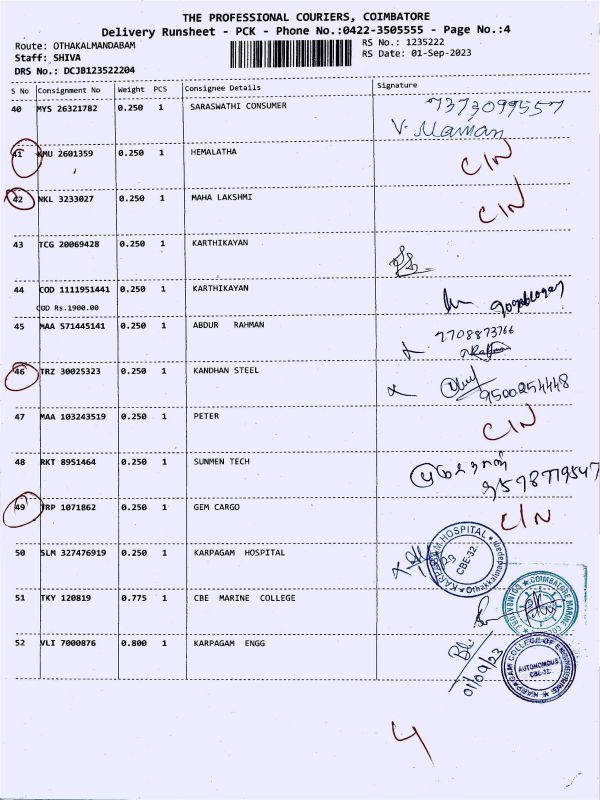 THE PROFESSIONAL COURIERS, COIMBATORE
Delivery Runsheet - PCK - Phone No.:0422-3505555 - Page No.:4
Route: OTHAKALMANDABAM RS No.: 1235222
Staff: SHIVA RS Date: 01-Sep-2023
DRS No.: DCJB123522204
S No Consignment No Weight PCS Consignee Details Signature
40 MYS 26321782 0.250 1 SARASWATHI CONSUMER 7373099557
V. Maman
41 KMU 2601359 0.250 1 HEMALATHA C/N
42 NKL 3233027 0.250 1 MAHA LAKSHMI C/N
43 TCG 20069428 0.250 1 KARTHIKAYAN
44 COD 1111951441 0.250 1 KARTHIKAYAN
COD Rs.1900.00
45 MAA 571445141 0.250 1 ABDUR RAHMAN 7708873766
46 TRZ 30025323 0.250 1 KANDHAN STEEL 9500254448
47 MAA 103243519 0.250 1 PETER C/N
48 RKT 8951464 0.250 1 SUNMEN TECH
9578719547
49 TRP 1071862 0.250 1 GEM CARGO C/N
50 SLM 327476919 0.250 1 KARPAGAM HOSPITAL
KARPAGAM HOSPITAL
CBE-32.
Othakkalmandapam
51 TKY 120819 0.775 1 CBE MARINE COLLEGE
COIMBATORE MARINE
52 VLI 7000876 0.800 1 KARPAGAM ENGG
01/09/23
KARPAGAM COLLEGE OF ENGINEERING
AUTONOMOUS
CBE-32.
4